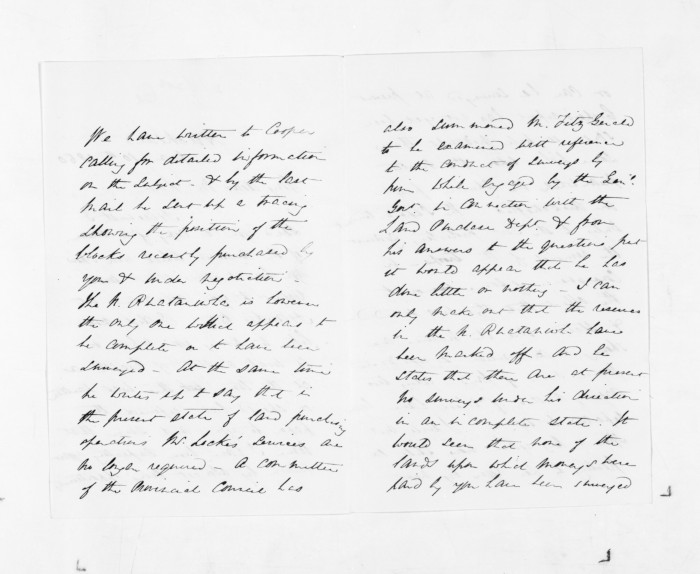 We have written to Cooper
calling for detailed information
on the subject - & by the last
mail he sent up a tracing
showing the position of the
blocks recently purchased by
you & under negotiation -
The N. is however
the only one which appears to
be complete or to have been
surveyed - At the same time
he writes up to say that in
the present state of land purchasing
operations Mr Locke's services are
no longer required - A committee
of the Provincial Council has
also summoned Mr. Fitz Gerald
to be examined with reference
to the conduct of surveys by
him while engaged by the Genl.
Govt. in connection with the
Land Purchase Dept. & from
his answers to the questions put
it would appear that he has
done little or nothing - I can
only make out that the reserves
in the N. have
been marked off - And he
states that there are at present
no surveys under his direction
in an incomplete state. It
would seem that none of the
lands upon which moneys were
paid by you have been surveyed